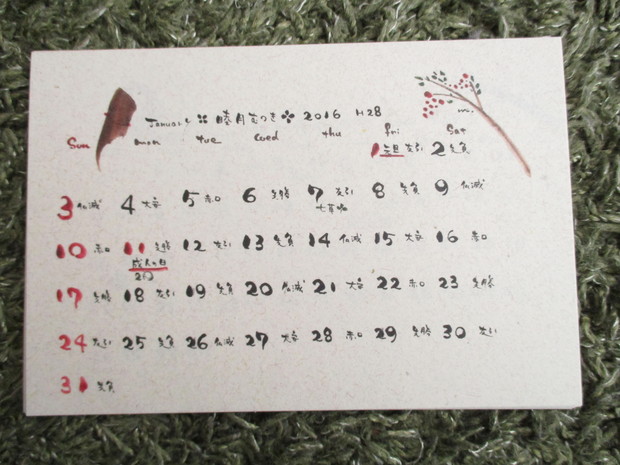 January ✽ 睦月むつき ✽ 2016 H28
Sun mon tue wed thu fri Sat
1 元旦 友引 2 先負
3 仏滅 4 大安 5 赤口 6 先勝 7 友引 8 先負 9 仏滅
七草粥
10 赤口 11 先勝 12 友引 13 先負 14 仏滅 15 大安 16 赤口
成人の日
17 先勝 18 友引 19 先負 20 仏滅 21 大安 22 赤口 23 先勝
24 友引 25 先負 26 仏滅 27 大安 28 赤口 29 先勝 30 友引
31 先負